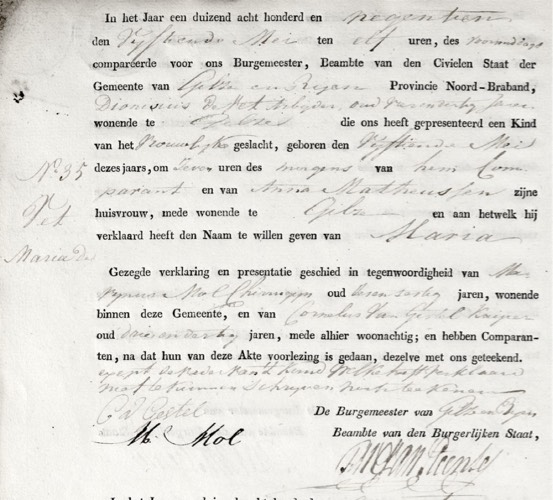 In het Jaar een duizend acht honderd en negentien
den Vyftiende Mei ten elf uren, des voormiddags
compareerde voor ons Burgemeester, Beambte van den Civielen Staat der
Gemeente van Gilze en Rijen Provincie Noord-Braband,
Dionisius de Vet oud jaren
wonende te Gilze die ons heeft gepresenteerd een Kind
van het Vrouwelyke geslacht, geboren den Vyftiende Mei
dezes jaars, om Zeven uren des morgens van hem Com
parant en van Anna Matheussen zijne
huisvrouw, mede wonende te Gilze en aan hetwelk hij
verklaard heeft den Naam te willen geven van Maria
No 35
Vet
Maria de
Gezegde verklaring en presentatie geschied in tegenwoordigheid van Ma
rynus Mol Chirurgyn oud jaren, wonende
binnen deze Gemeente, en van Cornelis van Kuiper
oud drie en dertig jaren, mede alhier woonachtig; en hebben Comparan-
ten, na dat hun van deze Akte voorlezing is gedaan, dezelve met ons geteekend.
except de Vader van 't kind welke heeft verklaard
niet te kunnen schryven noch teekenen
De Burgemeester van Gilze en Rijen
Beambte van den Burgerlijken Staat,
M. Mol